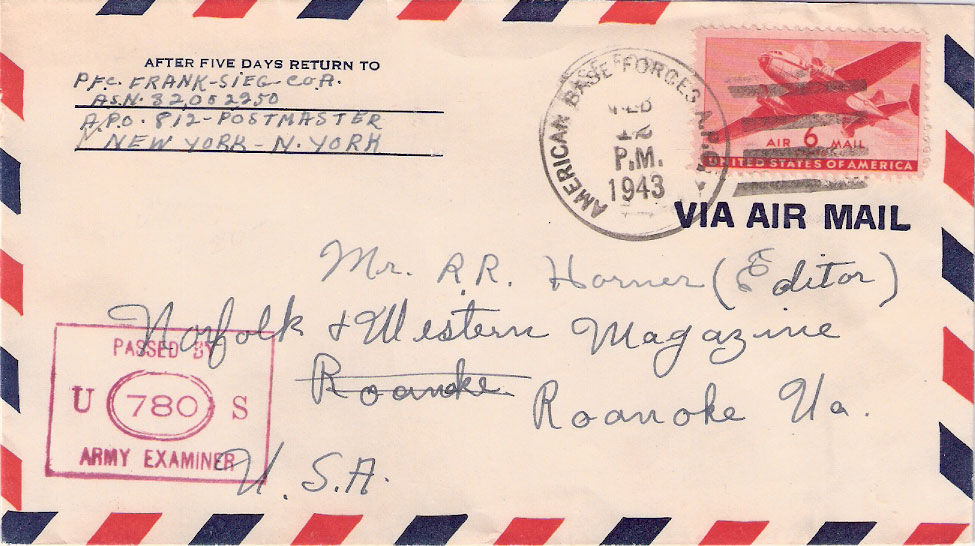 AFTER FIVE DAYS RETURN TO
PFC. FRANK-SIEG-CO.A.
ASN. 82052950
A.P.O. 812-POSTMASTER
NEW YORK-N.YORK
AMERICAN BASE FORCES A.P.O.
12
P.M.
1943
AIR 6 MAIL
UNITED STATES OF AMERICA
VIA AIR MAIL
Mr. R.R. Horner (Editor)
Norfolk & Western Magazine
Roanke
Roanoke Va.
U.S.A.
PASSED BY
U 780 S
ARMY EXAMINER